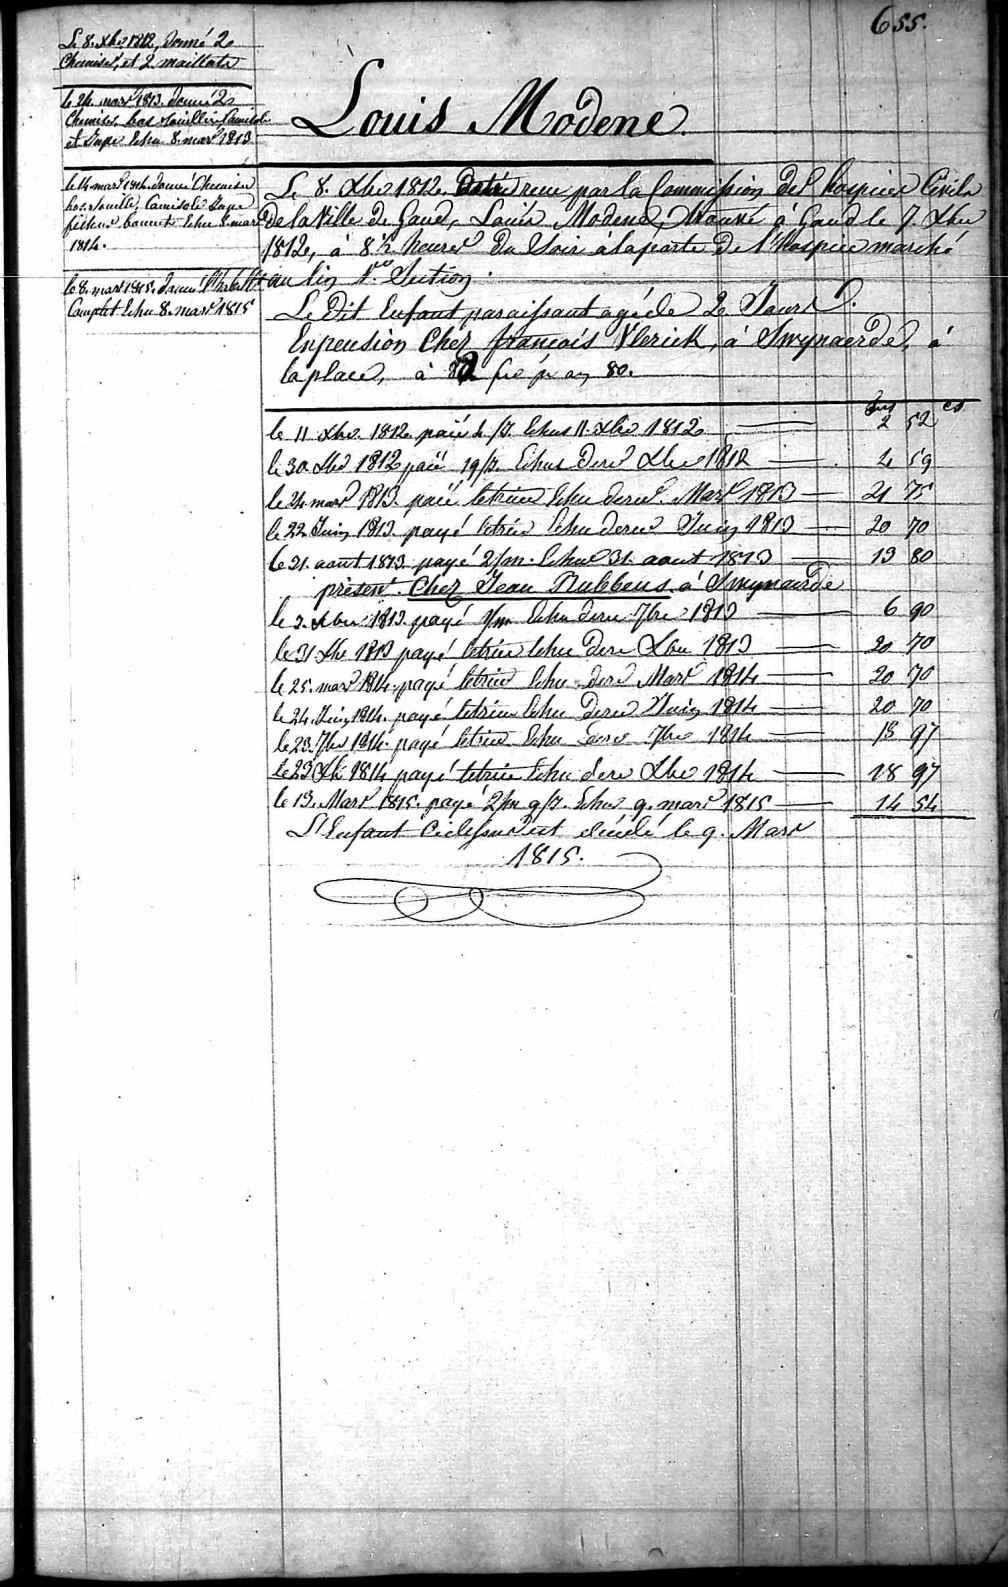 655.
Le 8. Xbre 1812, donné 2
Chemises, et 2 maillots
le 24. mars 1813. donné 2
Chemises, bas Souillier Camisole
et Jupe Echu 8. mars 1813
le 14 mars 1814. donné Chemise
bas Souillé, Camisole Jupe
fichu bonnet Echu 8. mars
1814.
le 8. mars 1815. donné
Complet Echu 8. mars 1815
Louis Modene.
Le 8. Xbre 1812. reçu par la Commission des hospices Civils
de la Ville de Gand, Louis Modene, trouvé à Gand le 7. Xbre
1812, à 8 heures du Soir à la porte de l'Hospice marché
au lin 1re Section.
Le Dit Enfant paraissant agé de 2 Jours.
En pension Chez françois Vlerick, à Swynaerde, à
la place, à fcs pr an 80.
fcs cs
le 11 Xbre. 1812. paié 4/7. Echus 11. Xbre 1812 2 52
le 30 Xbre 1812 paié 19/3. Echus dere Xbre 1812 4 59
le 24 mars 1813. paié letrim Echu dere. Mars 1813 21 75
le 22 Juin 1813. payé letrim Echu dere Juin 1813 20 70
le 31. aout 1813. payé 2/m. Echu 31. aout 1813 13 80
présent. Chez Jean à Swynaerde
le 3. Xbre 1813. payé 1/m Echu dere 7bre 1813 6 90
le 31 Xbre 1813 payé letrim Echu dere Xbre 1813 20 70
le 25. mars 1814. payé letrim Echu dere Mars 1814 20 70
le 24. Juin 1814. payé letrim Echu dere Juin 1814 20 70
le 23. 7bre 1814. payé letrim Echu dere 7bre 1814 18 97
le 23 Xbre 1814 payé letrim Echu dere Xbre 1814 18 97
le 13. Mars 1815. payé 2/m 9/7. Echu 9. mars 1815 14 54
L'Enfant Cidessus est décédé le 9. Mars
1815.